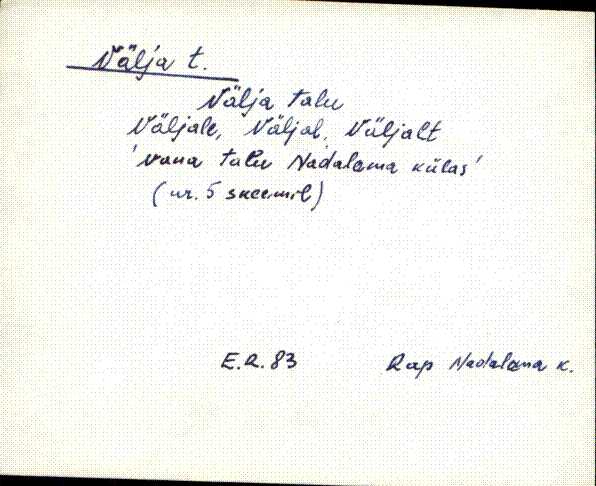 Välja t.
Välja talu
Väljale, Väljal, Väljalt
'vana talu Nadalama külas'
(nr. 5 skeemil)
E.R. 83 Rap Nadalama k.